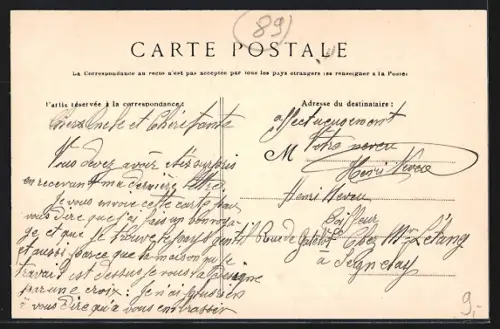 (89)
CARTE POSTALE
La Correspondance au recto n'est pas acceptée par tous les pays étrangers (se renseigner à la Poste)
Partie réservée à la correspondance :
Adresse du destinataire :
Cher Oncle et Chère tante
Vous devez avoir été surpris
en recevant ma dernière lettre
Je vous envoie cette carte pour
vous dire que j'ai fais un bon voya-
ge et que je trouve le pays gentil
et aussi parce que la maison où je
travail est dessus je vous la désigne
par une croix : je n'ai plus rien
à vous dire qu'à vous embrasser
affectueusement
M Votre neveu
Henri Neveu
Henri Neveu
Coiffeur
Chez Mr Létang
à Seignelay
9,-